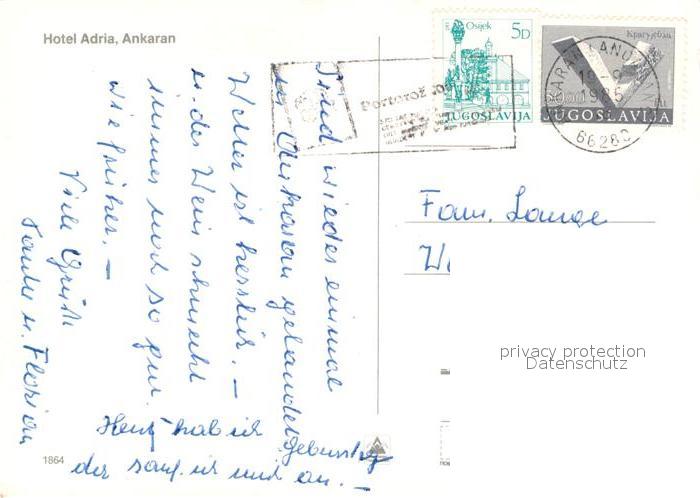 Hotel Adria, Ankaran
Sind wieder einmal
in Ankaran gelandet
Wetter ist herrlich. –
u. der Wein schmeckt
immer noch so gut
wie früher. –
Viele Grüße
Tante u. Florian
Heut hab ich geburtstag
der
ich und an. –
1864
Osijek
5D
JUGOSLAVIJA
Крагујевац
JUGOSLAVIJA
Portorož
19-9
1985
66280
Fam. Lange
W
privacy protection
Datenschutz